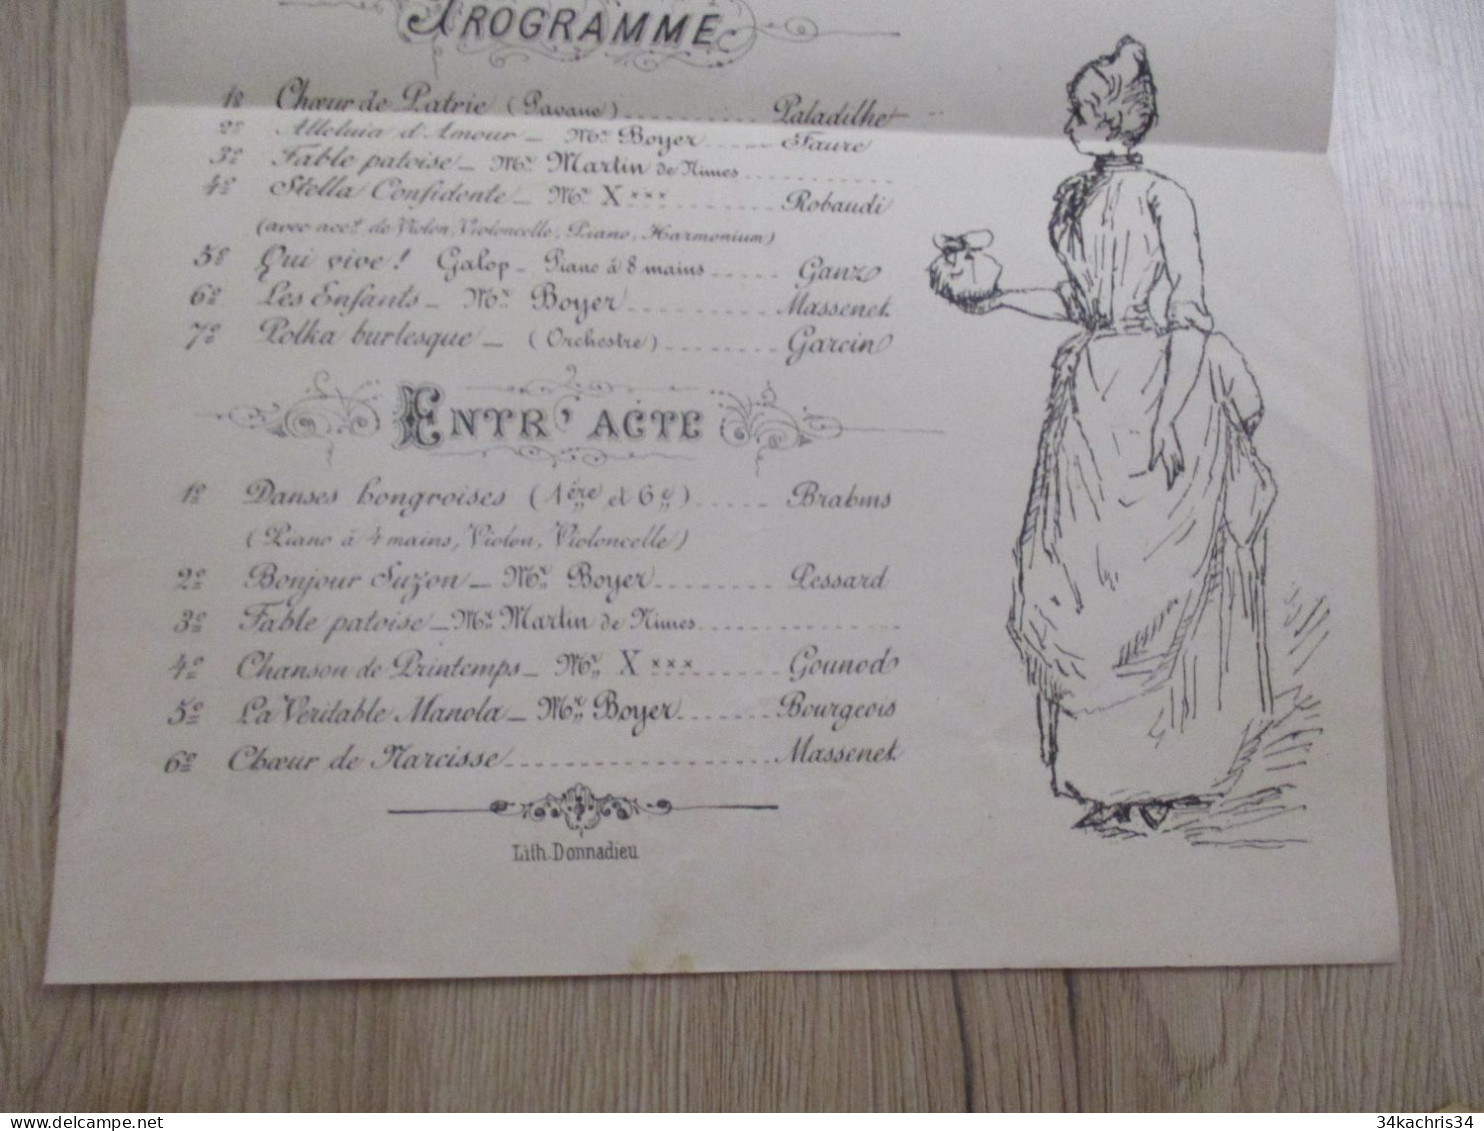 PROGRAMME
1º Chœur de Patrie (Pavane) Paladilhe
2º Alleluia d'Amour _ Mr Boyer Faure
3º Fable patoise _ Mr Martin de Nimes
4º Stella Confidente _ Mr X*** Robaudi
(avec acct de Violon, Violoncelle, Piano, Harmonium)
5º Qui vive! Galop _ Piano à 8 mains Ganz
6º Les Enfants _ Mr Boyer Massenet
7º Polka burlesque _ (Orchestre) Garcin
ENTR'ACTE
1º Danses hongroises (1ère et 6e) Brahms
(Piano à 4 mains, Violon, Violoncelle)
2º Bonjour Suzon _ Mr Boyer Pessard
3º Fable patoise _ Mr Martin de Nimes
4º Chanson de Printemps _ Mr X*** Gounod
5º La Veritable Manola _ Mr Boyer Bourgeois
6º Chœur de Narcisse Massenet
Lith. Donnadieu
delcampe.net
34kachris34